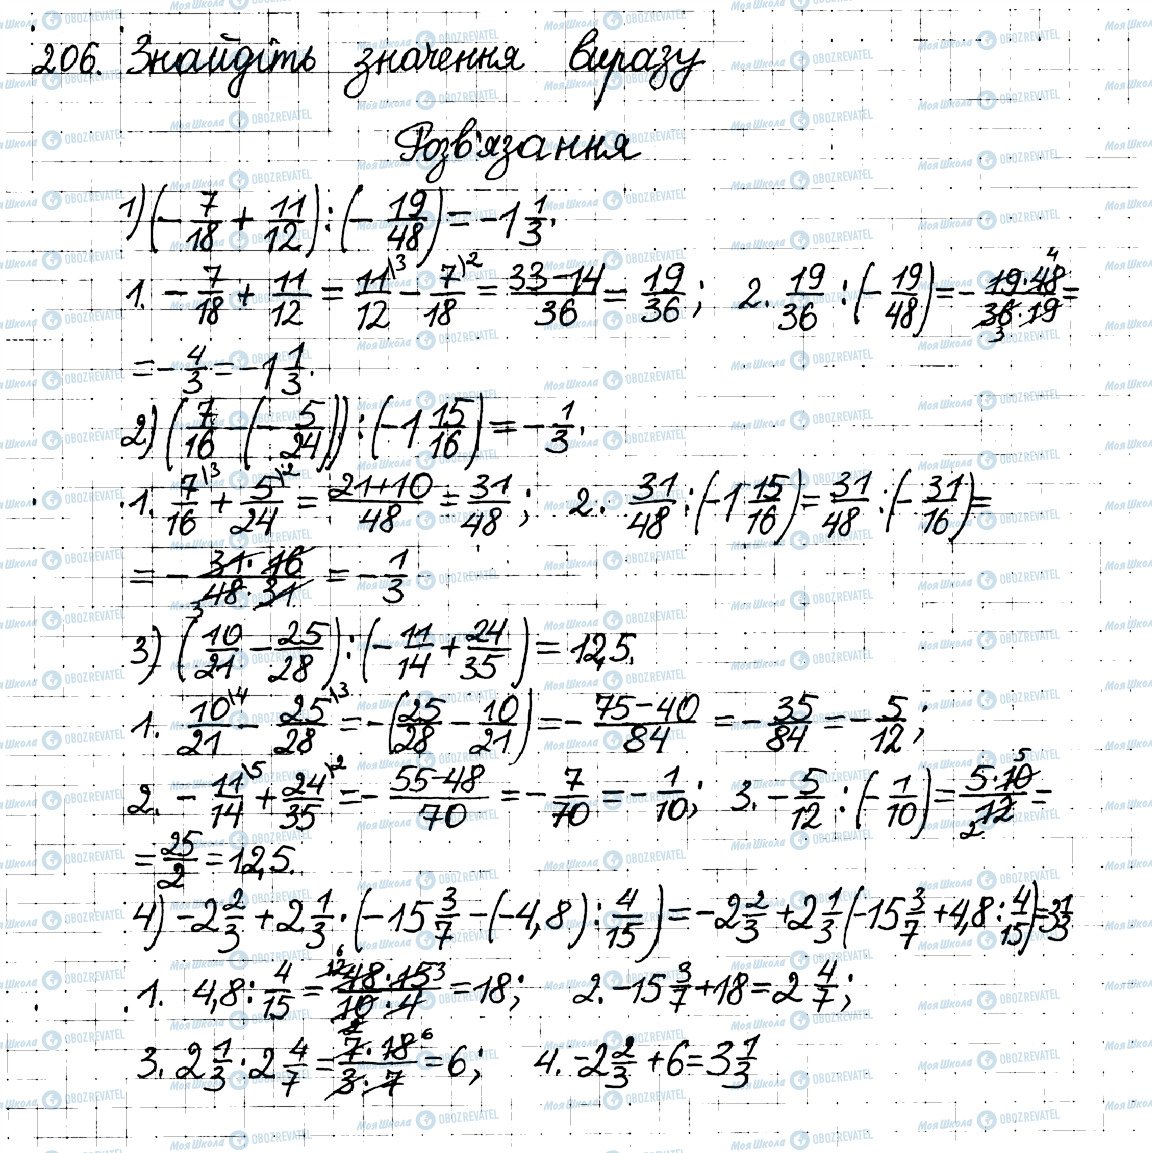 206. Знайдіть значення виразу
Розв'язання
1) (-7/18 + 11/12) : (-19/48) = -1 1/3.
1. -7/18 + 11/12 = 11/12\3 - 7/18\2 = (33-14)/36 = 19/36; 2. 19/36 : (-19/48) = -(19·48 4)/(36 3·19) =
= -4/3 = -1 1/3.
2) (7/16 - (-5/24)) : (-1 15/16) = -1/3.
1. 7/16\3 + 5/24\2 = (21+10)/48 = 31/48; 2. 31/48 : (-1 15/16) = 31/48 : (-31/16) =
= -(31·16)/(48 3·31) = -1/3
3) (10/21 - 25/28) : (-11/14 + 24/35) = 12,5.
1. 10/21\4 - 25/28\3 = -(25/28 - 10/21) = -(75-40)/84 = -35/84 = -5/12;
2. -11/14\5 + 24/35\2 = -(55-48)/70 = -7/70 = -1/10; 3. -5/12 : (-1/10) = (5·10 5)/(12 2) =
= 25/2 = 12,5.
4) -2 2/3 + 2 1/3 · (-15 3/7 - (-4,8) : 4/15) = -2 2/3 + 2 1/3 (-15 3/7 + 4,8 : 4/15) = 3 1/3
1. 4,8 : 4/15 = (48 12 6·15 3)/(10 2·4) = 18; 2. -15 3/7 + 18 = 2 4/7;
3. 2 1/3 · 2 4/7 = (7·18 6)/(3·7) = 6; 4. -2 2/3 + 6 = 3 1/3
МояШкола OBOZREVATEL